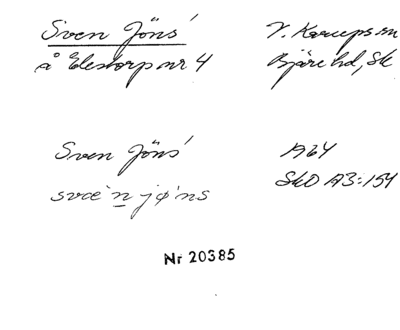 Sven Jöns'
V. Karups sn
å Elestorp nr 4
Bjäre hd, Sk
Sven Jöns'
1964
svæ`n jø'ns
SkO A3:154
Nr 20385